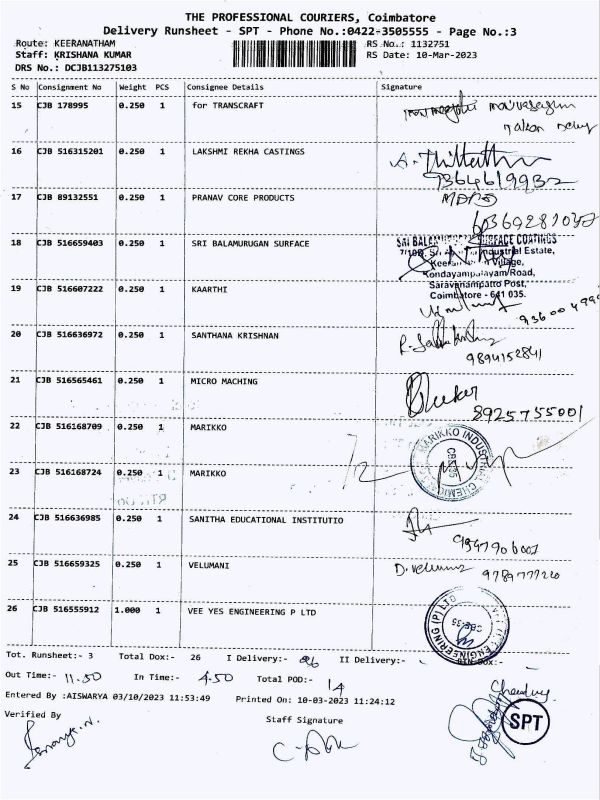 THE PROFESSIONAL COURIERS, Coimbatore
Delivery Runsheet - SPT - Phone No.:0422-3505555 - Page No.:3
Route: KEERANATHAM
RS No.: 1132751
Staff: KRISHANA KUMAR
RS Date: 10-Mar-2023
DRS No.: DCJB113275103
S No Consignment No Weight PCS Consignee Details Signature
15 CJB 178995 0.250 1 for TRANSCRAFT
16 CJB 516315201 0.250 1 LAKSHMI REKHA CASTINGS
9364619932
17 CJB 89132551 0.250 1 PRANAV CORE PRODUCTS
18 CJB 516659403 0.250 1 SRI BALAMURUGAN SURFACE
SRI BALAMURUGAN SURFACE COATINGS
Industrial Estate,
Village,
Kondayampalayam Road,
Saravanampatto Post,
Coimbatore - 641 035.
19 CJB 516607222 0.250 1 KAARTHI
20 CJB 516636972 0.250 1 SANTHANA KRISHNAN
9894152841
21 CJB 516565461 0.250 1 MICRO MACHING
8925755001
22 CJB 516168709 0.250 1 MARIKKO
MARIKKO INDUSTRIAL CHEMIC
23 CJB 516168724 0.250 1 MARIKKO
24 CJB 516636985 0.250 1 SANITHA EDUCATIONAL INSTITUTIO
25 CJB 516659325 0.250 1 VELUMANI D. Velumani
9789777220
26 CJB 516555912 1.000 1 VEE YES ENGINEERING P LTD
ENGINEERING (P) LTD
CBE-35
Tot. Runsheet:- 3 Total Dox:- 26 I Delivery:- 26 II Delivery:-
Out Time:- 11.50 In Time:- 4.50 Total POD:- 14
Entered By :AISWARYA 03/10/2023 11:53:49 Printed On: 10-03-2023 11:24:12
Verified By
Staff Signature
SPT